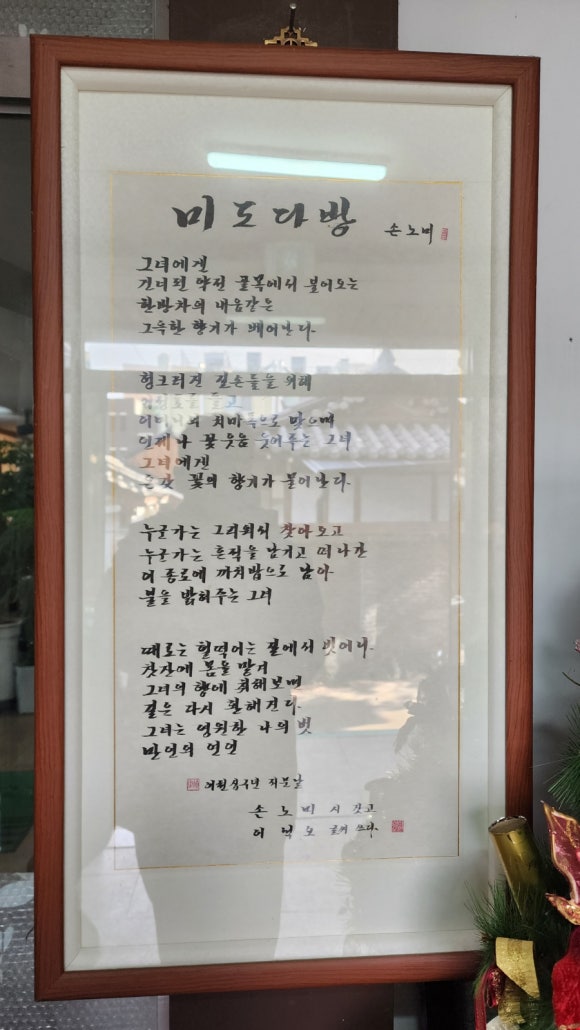 미도다방
손노미
그녀에겐
건너편 약전 골목에서 불어오는
한방차의 내음같은
그윽한 향기가 베어난다.
헝크러진 길손들을 위해
들고
치마폭으로 맞으며
언제나 꽃웃음 웃어주는 그녀
그녀에겐
꽃의 향기가 불어난다.
누군가는 그리워서 찾아오고
누군가는 흔적을 남기고 떠나간
이 종로에 까치밥으로 남아
불을 밝혀주는 그녀
때로는 헐떡이는 길에서 벗어나
찻잔에 몸을 맡겨
그녀의 향에 취해보며
길은 다시 환해진다.
그녀는 영원한 나의 벗
만인의 연인
이천십구년 저문날
손노미 시 짓고
이 쓰다.